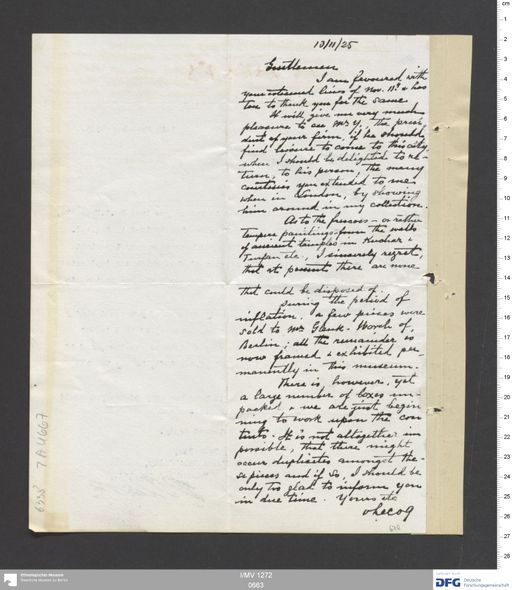 10/11/25
Gentlemen
I am favoured with
your esteemed lines of Nov. & has
ten to thank you for the same
It will give me very much
pleasure to see Mr Y. the presi
dent of your firm, if he should
find leisure to come to this city
when I should be delighted to re-
turn, to his person, the many
courtesies you extended to me
when in London, by showing
him around in my collection.
As to the frescoes – or rather
tempera paintings from the walls
of ancient temples in Kuchar &
Turfan etc., I sincerely regret,
that at present there are none
that could be disposed of.
During the period of
inflation, a few pieces were
sold to Mr Glenk-Worch of,
Berlin; all the remainder is
now framed & exhibited per-
manently in this museum.
There is, however, yet
a large number of boxes un-
packed & we are just begin
ning to work upon the con
tents. It is not altogether im
possible, that there might
occur duplicates amongst the-
se pieces and if so, I should be
only too glad to inform you
in due time. Yours etc
vLecoq
7AU667
Ethnologisches Museum
Staatliche Museen zu Berlin
I/MV 1272
0663
DFG
Deutsche
Forschungsgemeinschaft
cm
1
2
3
4
5
6
7
8
9
10
11
12
13
14
15
16
17
18
19
20
21
22
23
24
25
26
27
28